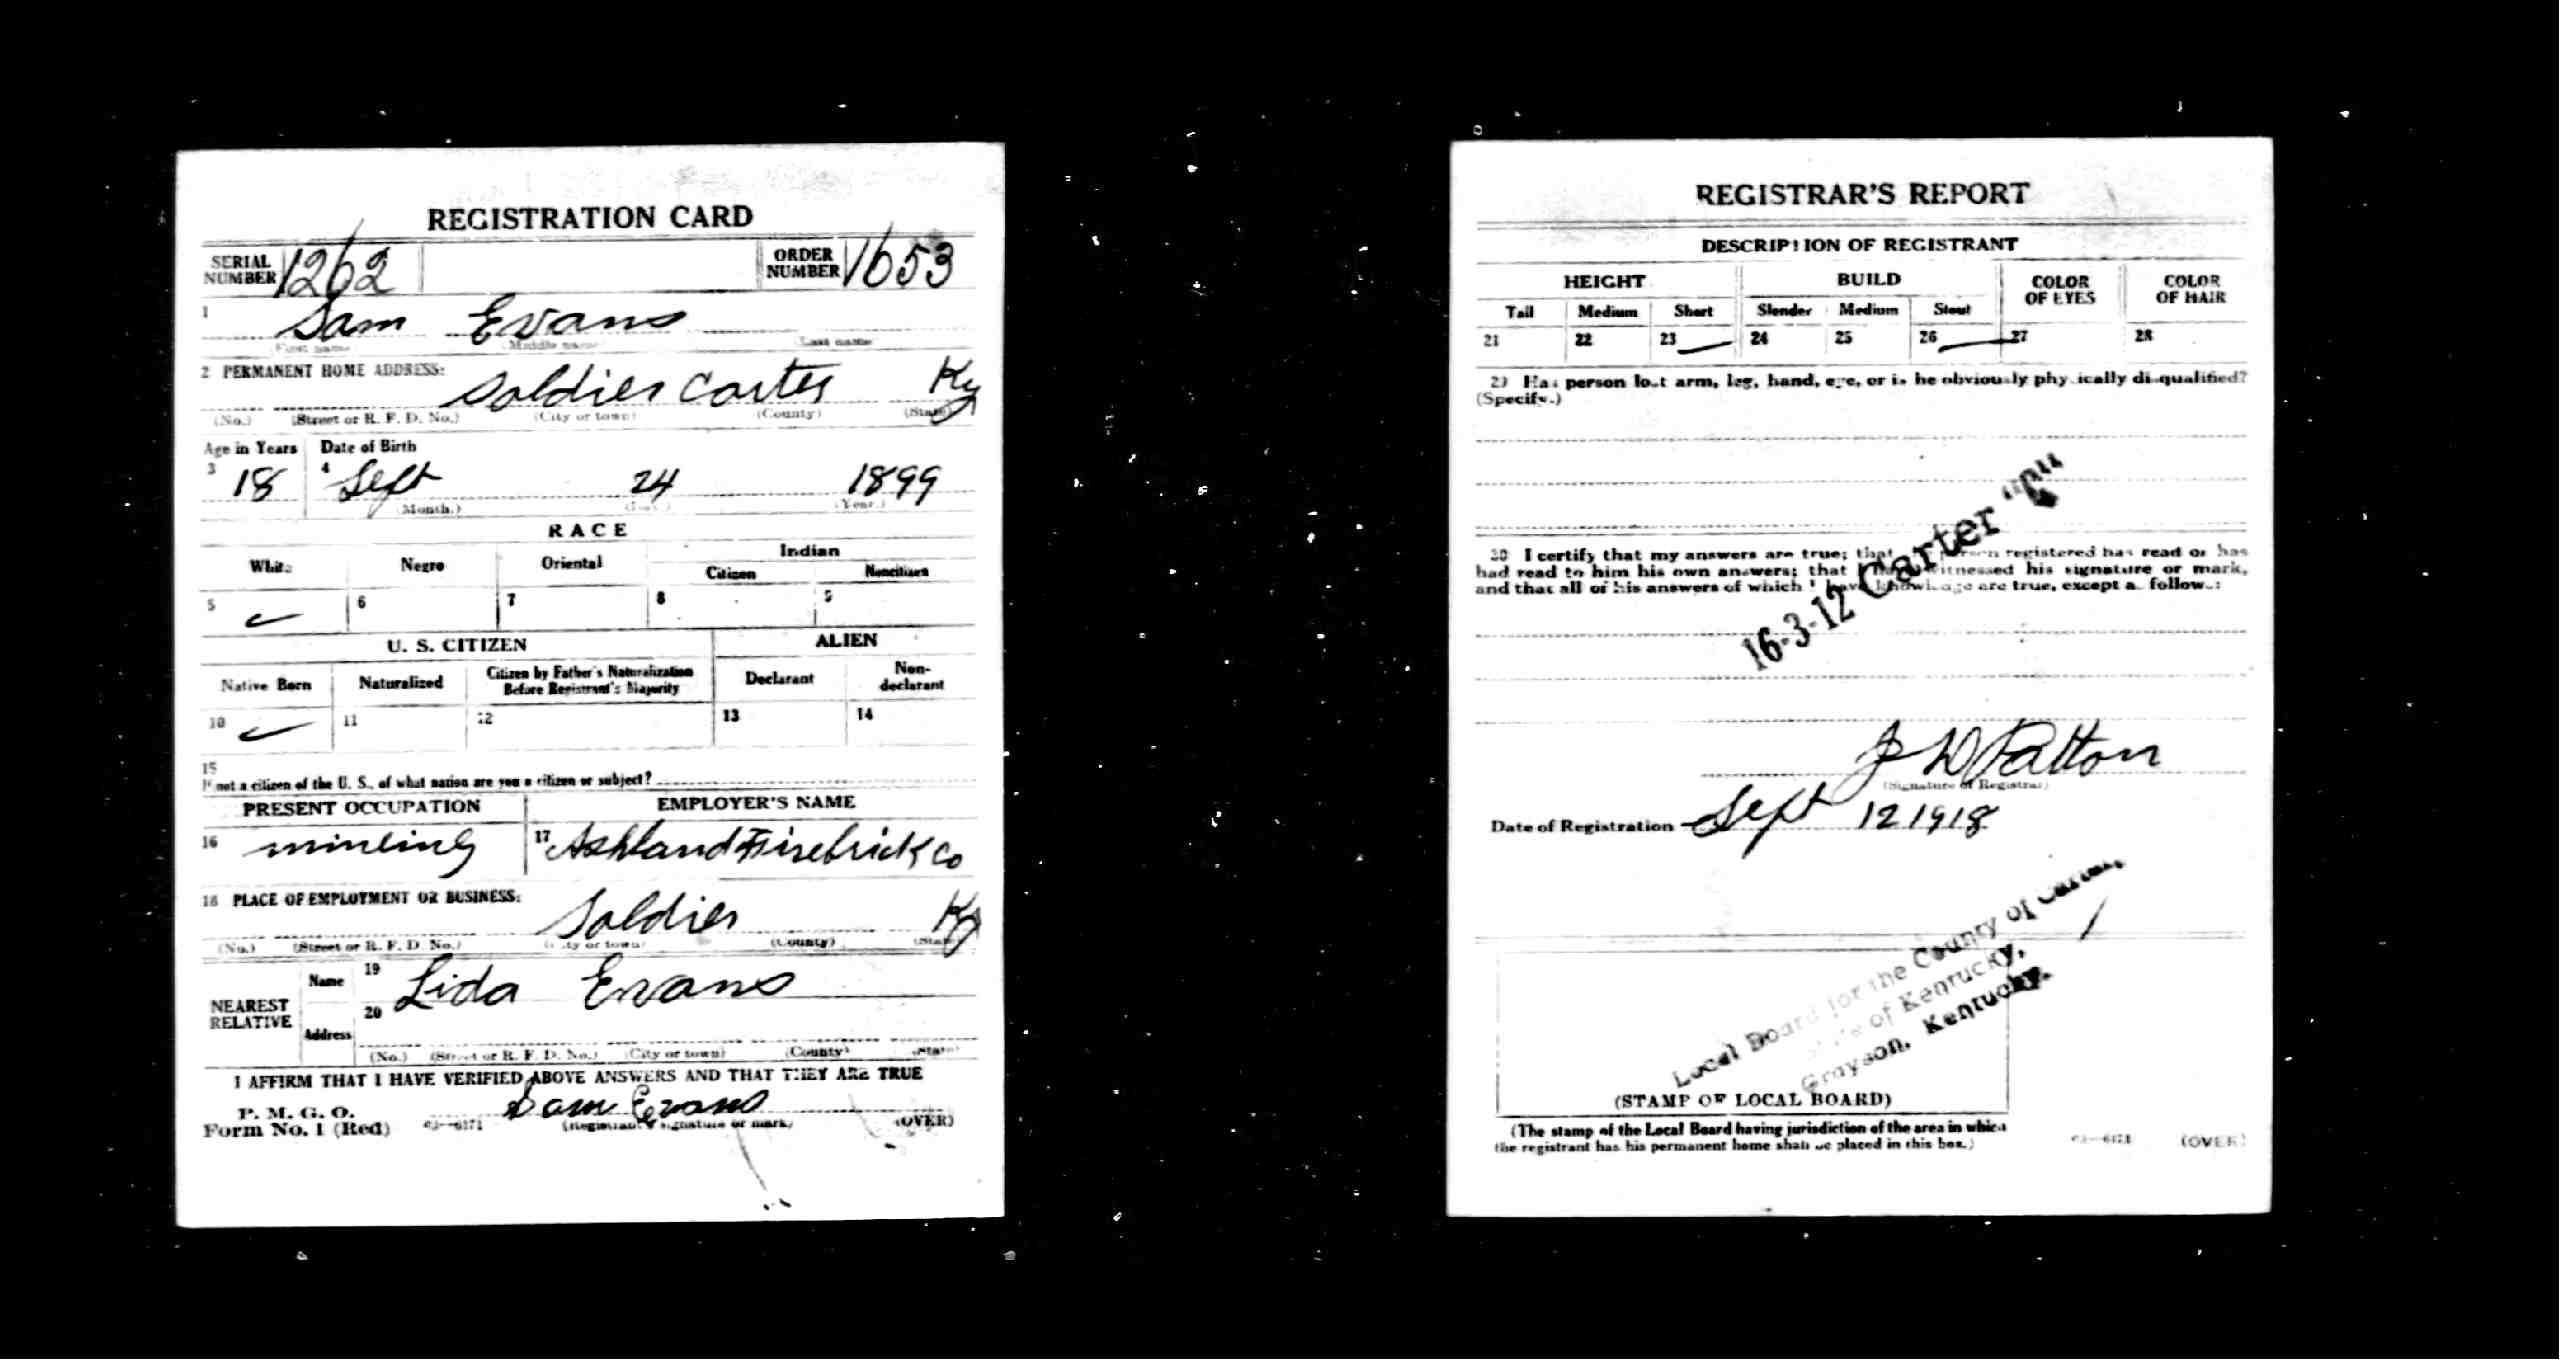 REGISTRATION CARD
SERIAL NUMBER 1262 ORDER NUMBER 1653
1 Sam Evans
First name Middle name Last name
2 PERMANENT HOME ADDRESS: Soldier Carter Ky
(No.) (Street or R. F. D. No.) (City or town) (County) (State)
Age in Years Date of Birth
3 18 4 Sept 24 1899
(Month.) (Day.) (Year.)
RACE
White Negro Oriental Indian
Citizen Noncitizen
5 6 7 8 9
U. S. CITIZEN ALIEN
Native Born Naturalized Citizen by Father's Naturalization Before Registrant's Majority Declarant Non-declarant
10 11 12 13 14
15
If not a citizen of the U. S., of what nation are you a citizen or subject?
PRESENT OCCUPATION EMPLOYER'S NAME
16 mineing 17 Ashland Firebrick Co
18 PLACE OF EMPLOYMENT OR BUSINESS: Soldier Ky
(No.) (Street or R. F. D. No.) (City or town) (County) (State)
NEAREST RELATIVE
Name 19 Lida Evans
Address 20
(No.) (Street or R. F. D. No.) (City or town) (County) (State)
I AFFIRM THAT I HAVE VERIFIED ABOVE ANSWERS AND THAT THEY ARE TRUE
P. M. G. O.
Form No. 1 (Red) 03—6171 Sam Evans
(Registrant's signature or mark) (OVER)
REGISTRAR'S REPORT
DESCRIPTION OF REGISTRANT
HEIGHT BUILD COLOR OF EYES COLOR OF HAIR
Tall Medium Short Slender Medium Stout
21 22 23 24 25 26 27 28
29 Has person lost arm, leg, hand, eye, or is he obviously physically disqualified?
(Specify.)
30 I certify that my answers are true; that person registered has read or has
had read to him his own answers; that I have witnessed his signature or mark,
and that all of his answers of which I have knowledge are true, except as follows:
16-3-12 Carter
J D Patton
(Signature of Registrar)
Date of Registration Sept 12 1918
Local Board for the County of Carter,
State of Kentucky,
Grayson, Kentucky.
(STAMP OF LOCAL BOARD)
(The stamp of the Local Board having jurisdiction of the area in which
the registrant has his permanent home shall be placed in this box.)
03—6171 (OVER)